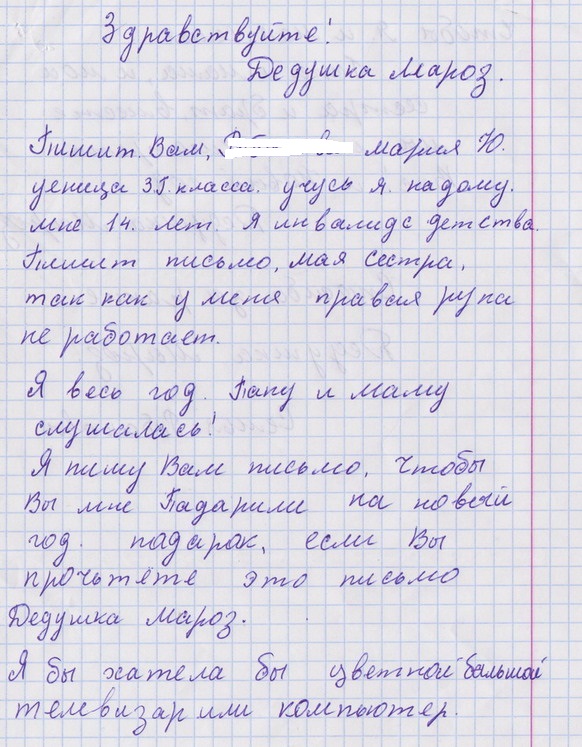 Здравствуйте!
Дедушка Мароз.
Пишит Вам, мария Ю.
ученица 3Г. класса. учусь я. на дому.
мне 14. лет. Я инвалидс детства.
Пишит письмо, мая сестра,
так как у меня правая рука
не работает.
Я весь год. Папу и маму
слушалась!
Я пишу Вам письмо, чтобы
Вы мне Падарили на новый
год. падарак, если Вы
прочьтёте это письмо
Дедушка Мароз.
Я бы хатела бы цветной большой
телевизар или компьютер.